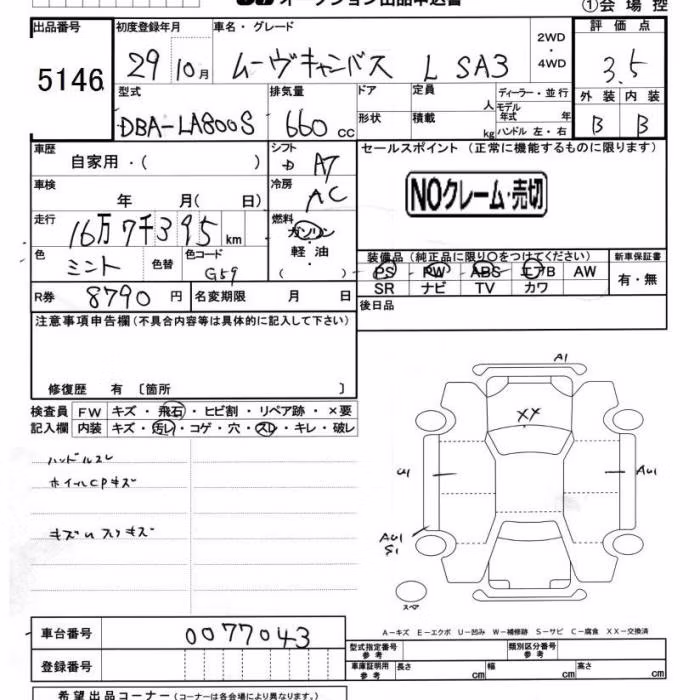 オークション出品申込書
①会場控
出品番号 初度登録年月 車名・グレード 2WD・4WD 評価点
5146 29 10月 ムーヴキャンバス L SA3 3.5
型式 排気量 ドア 定員 人 ディーラー・並行 外装 内装
モデル年式 年
DBA-LA800S 660 cc 形状 積載 kg ハンドル 左・右 B B
車歴 シフト セールスポイント (正常に機能するものに限ります)
自家用・( ) D AT
NOクレーム・売切
車検 年 月( 日) 冷房 AC
走行 16万7千395 km 燃料 ガソリン・軽油 ( )
色 ミント 色替 色コード G59
装備品 (純正品に限り○をつけてください) 新車保証書
PS PW ABS エアB AW 有・無
SR ナビ TV カワ
R券 8790 円 名変期限 月 日 後日品
注意事項申告欄 (不具合内容等は具体的に記入して下さい)
修復歴 有 〔箇所 〕
検査員 FW キズ・飛石・ヒビ割・リペア跡・×要
記入欄 内装 キズ・汚レ・コゲ・穴・スレ・キレ・破レ
ハンドルスレ
ホイールCPキズ
キズUスリキズ
A1
XX
U1
AU1
AU1
S1
スペア
A-キズ E-エクボ U-凹み W-補修跡 S-サビ C-腐食 XX-交換済
車台番号 0077043
型式指定番号 参考 類別区分番号 参考
登録番号
車庫証明用 参考 長さ cm 幅 cm 高さ cm
希望出品コーナー (コーナーは各会場により異なります。)